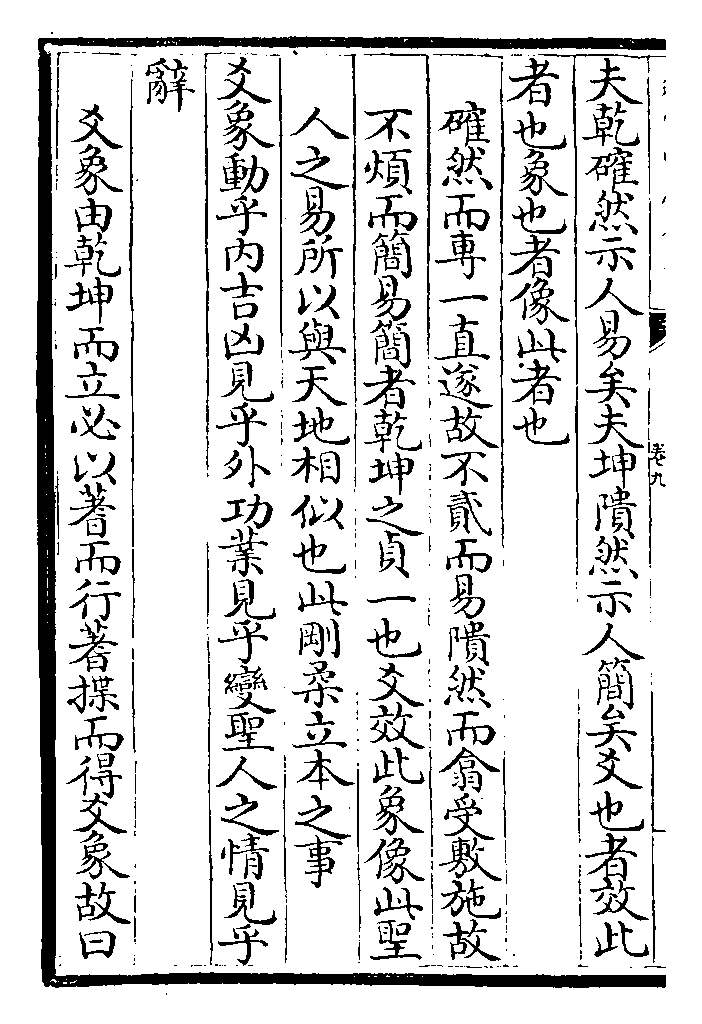 夫乾確然示人易矣夫坤隤然示人簡矣爻也者效此
者也象也者像此者也
確然而專一直遂故不貳而易隤然而翕受敷施故
不煩而簡易簡者乾坤之貞一也爻效此象像此聖
人之易所以與天地相似也此剛柔立本之事
爻象動乎内吉凶見乎外功業見乎變聖人之情見乎
辭
爻象由乾坤而立必以蓍而行蓍揲而得爻象故曰
卷九